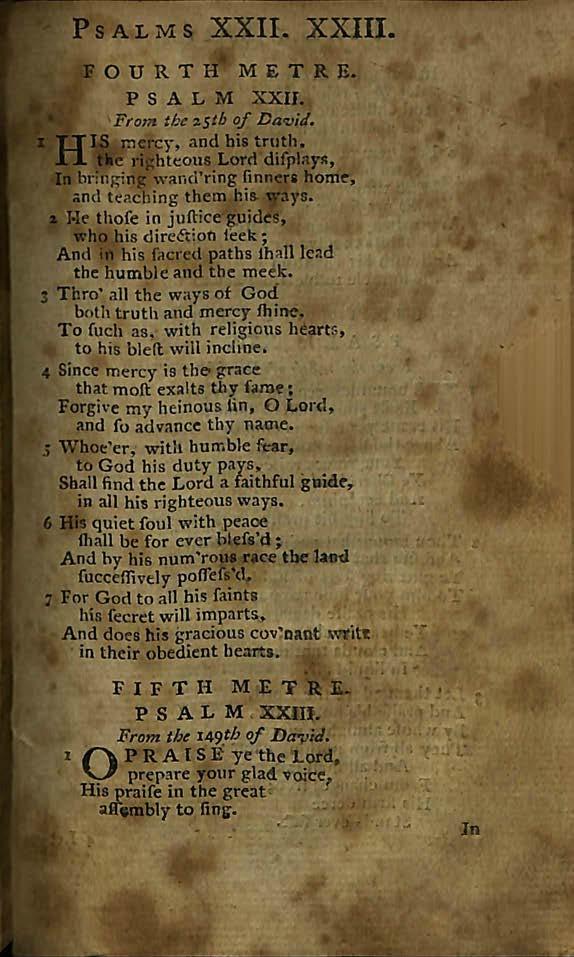 PSALMS XXII. XXIII.
FOURTH METRE.
PSALM XXII.
From the 25th of David.
1 HIS mercy, and his truth,
the righteous Lord diſplays,
In bringing wand'ring ſinners home,
and teaching them his ways.
2 He thoſe in juſtice guides,
who his direction ſeek;
And in his ſacred paths ſhall lead
the humble and the meek.
3 Thro' all the ways of God
both truth and mercy ſhine,
To ſuch as, with religious hearts,
to his bleſt will incline.
4 Since mercy is the grace
that moſt exalts thy fame;
Forgive my heinous ſin, O Lord,
and ſo advance thy name.
5 Whoe'er, with humble fear,
to God his duty pays,
Shall find the Lord a faithful guide,
in all his righteous ways.
6 His quiet ſoul with peace
ſhall be for ever bleſs'd;
And by his num'rous race the land
ſucceſſively poſſeſs'd.
7 For God to all his ſaints
his ſecret will imparts,
And does his gracious cov'nant write
in their obedient hearts.
FIFTH METRE.
PSALM XXIII.
From the 149th of David.
1 O PRAISE ye the Lord,
prepare your glad voice,
His praiſe in the great
aſſembly to ſing.
In